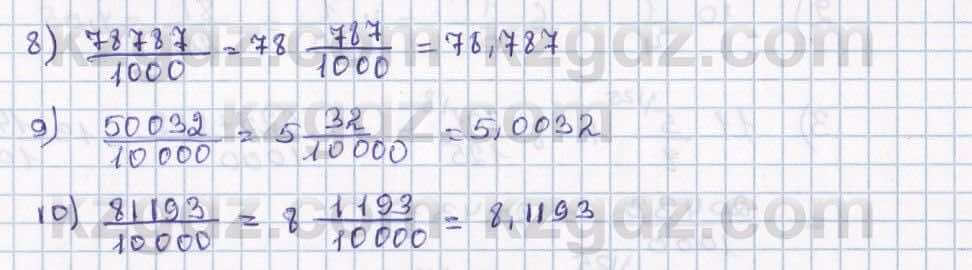 8) 78787/1000 = 78 787/1000 = 78,787
9) 50032/10000 = 5 32/10000 = 5,0032
10) 81193/10000 = 8 1193/10000 = 8,1193
kzgdz.com
kzgdz.com
kzgdz.com